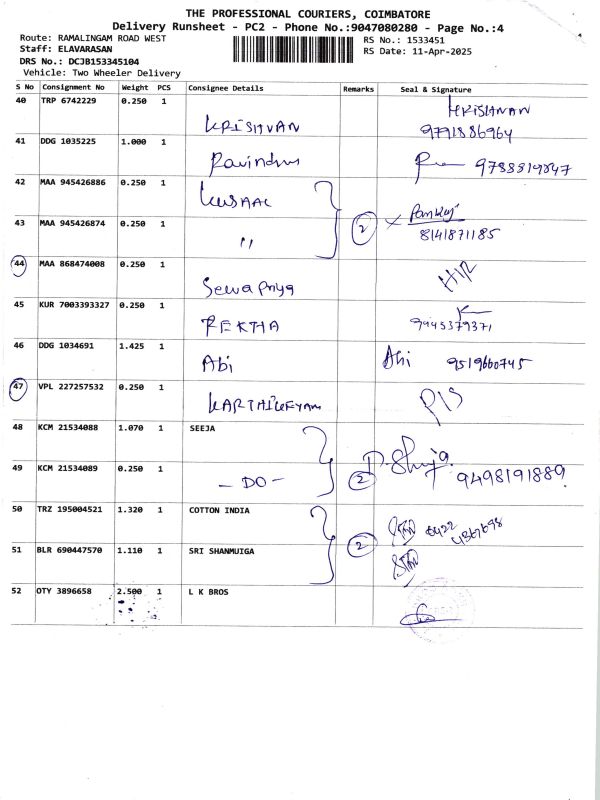 THE PROFESSIONAL COURIERS, COIMBATORE
Delivery Runsheet - PC2 - Phone No.:9047080280 - Page No.:4
Route: RAMALINGAM ROAD WEST
RS No.: 1533451
Staff: ELAVARASAN
RS Date: 11-Apr-2025
DRS No.: DCJB153345104
Vehicle: Two Wheeler Delivery
S No Consignment No Weight PCS Consignee Details Remarks Seal & Signature
40 TRP 6742229 0.250 1 KRISHNAN
9791886964
41 DDG 1035225 1.000 1 Ravindran 9788819847
42 MAA 945426886 0.250 1 KUSAAL
Pankaj
43 MAA 945426874 0.250 1 " 2 8141871185
44 MAA 868474008 0.250 1 Sewa Priya
45 KUR 7003393327 0.250 1 REKTHA 9445379371
46 DDG 1034691 1.425 1 Abi Abi 9519660745
47 VPL 227257532 0.250 1 KARTHIKEYAN
48 KCM 21534088 1.070 1 SEEJA
49 KCM 21534089 0.250 1 - DO - 2 9498191889
50 TRZ 195004521 1.320 1 COTTON INDIA 0422
51 BLR 690447570 1.110 1 SRI SHANMUIGA 2
52 OTY 3896658 2.500 1 L K BROS